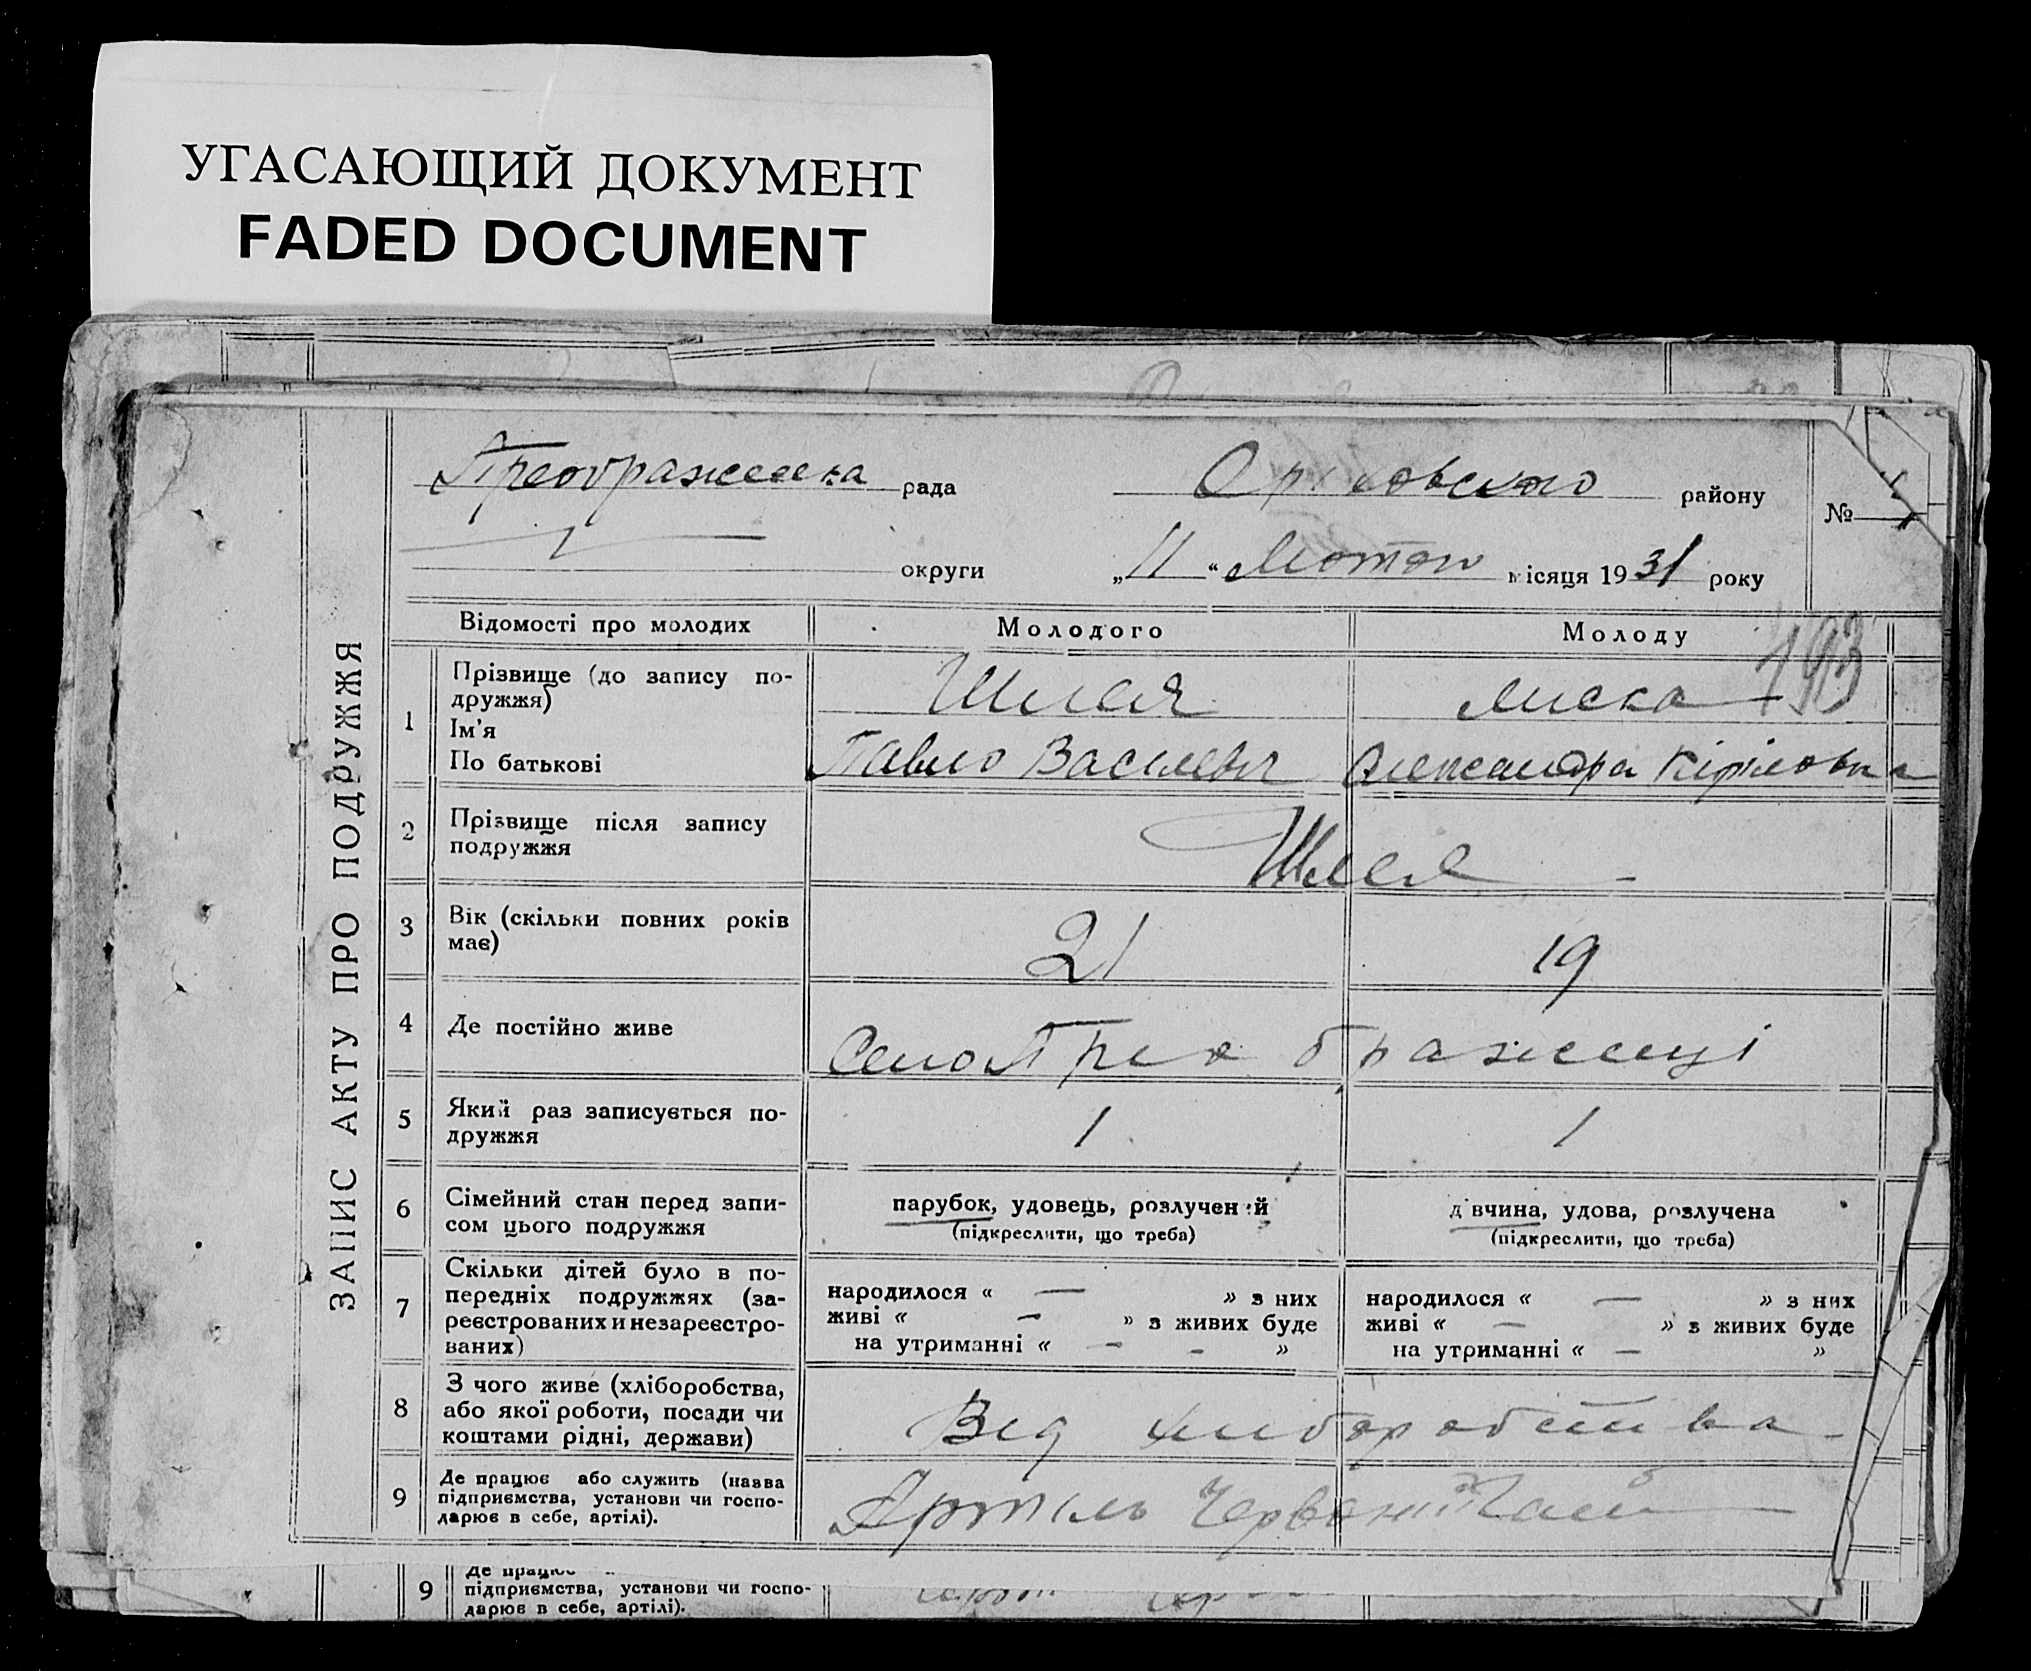 УГАСАЮЩИЙ ДОКУМЕНТ
FADED DOCUMENT
ЗАПИС АКТУ ПРО ПОДРУЖЖЯ
Преображенська рада
Оріховського району
№
округи
„11“ Лютого місяця 1931 року
Відомості про молодих
Молодого
Молоду
193
1
Прізвище (до запису по-
дружжя)
Ім'я
По батькові
Шлея
Лиска
Павло Василевич
Александра Кіріловна
2
Прізвище після запису
подружжя
Шлея
3
Вік (скільки повних років
має)
21
19
4
Де постійно живе
Село Преображенці
5
Який раз записується по-
дружжя
1
1
6
Сімейний стан перед запи-
сом цього подружжя
парубок, удовець, розлучений
(підкреслити, що треба)
дівчина, удова, розлучена
(підкреслити, що треба)
7
Скільки дітей було в по-
передніх подружжях (за-
реєстрованих и незареєстро-
ваних)
народилося « — » з них
живі « — » з живих буде
на утриманні « — - »
народилося « — » з них
живі « — » з живих буде
на утриманні « — »
8
З чого живе (хліборобства,
або якої роботи, посади чи
коштами рідні, держави)
Від хлиборобства
9
Де працює або служить (назва
підприємства, установи чи госпо-
дарює в себе, артілі).
Артиль Червоний
9
Де працює
підприємства, установи чи госпо-
дарює в себе, артілі).